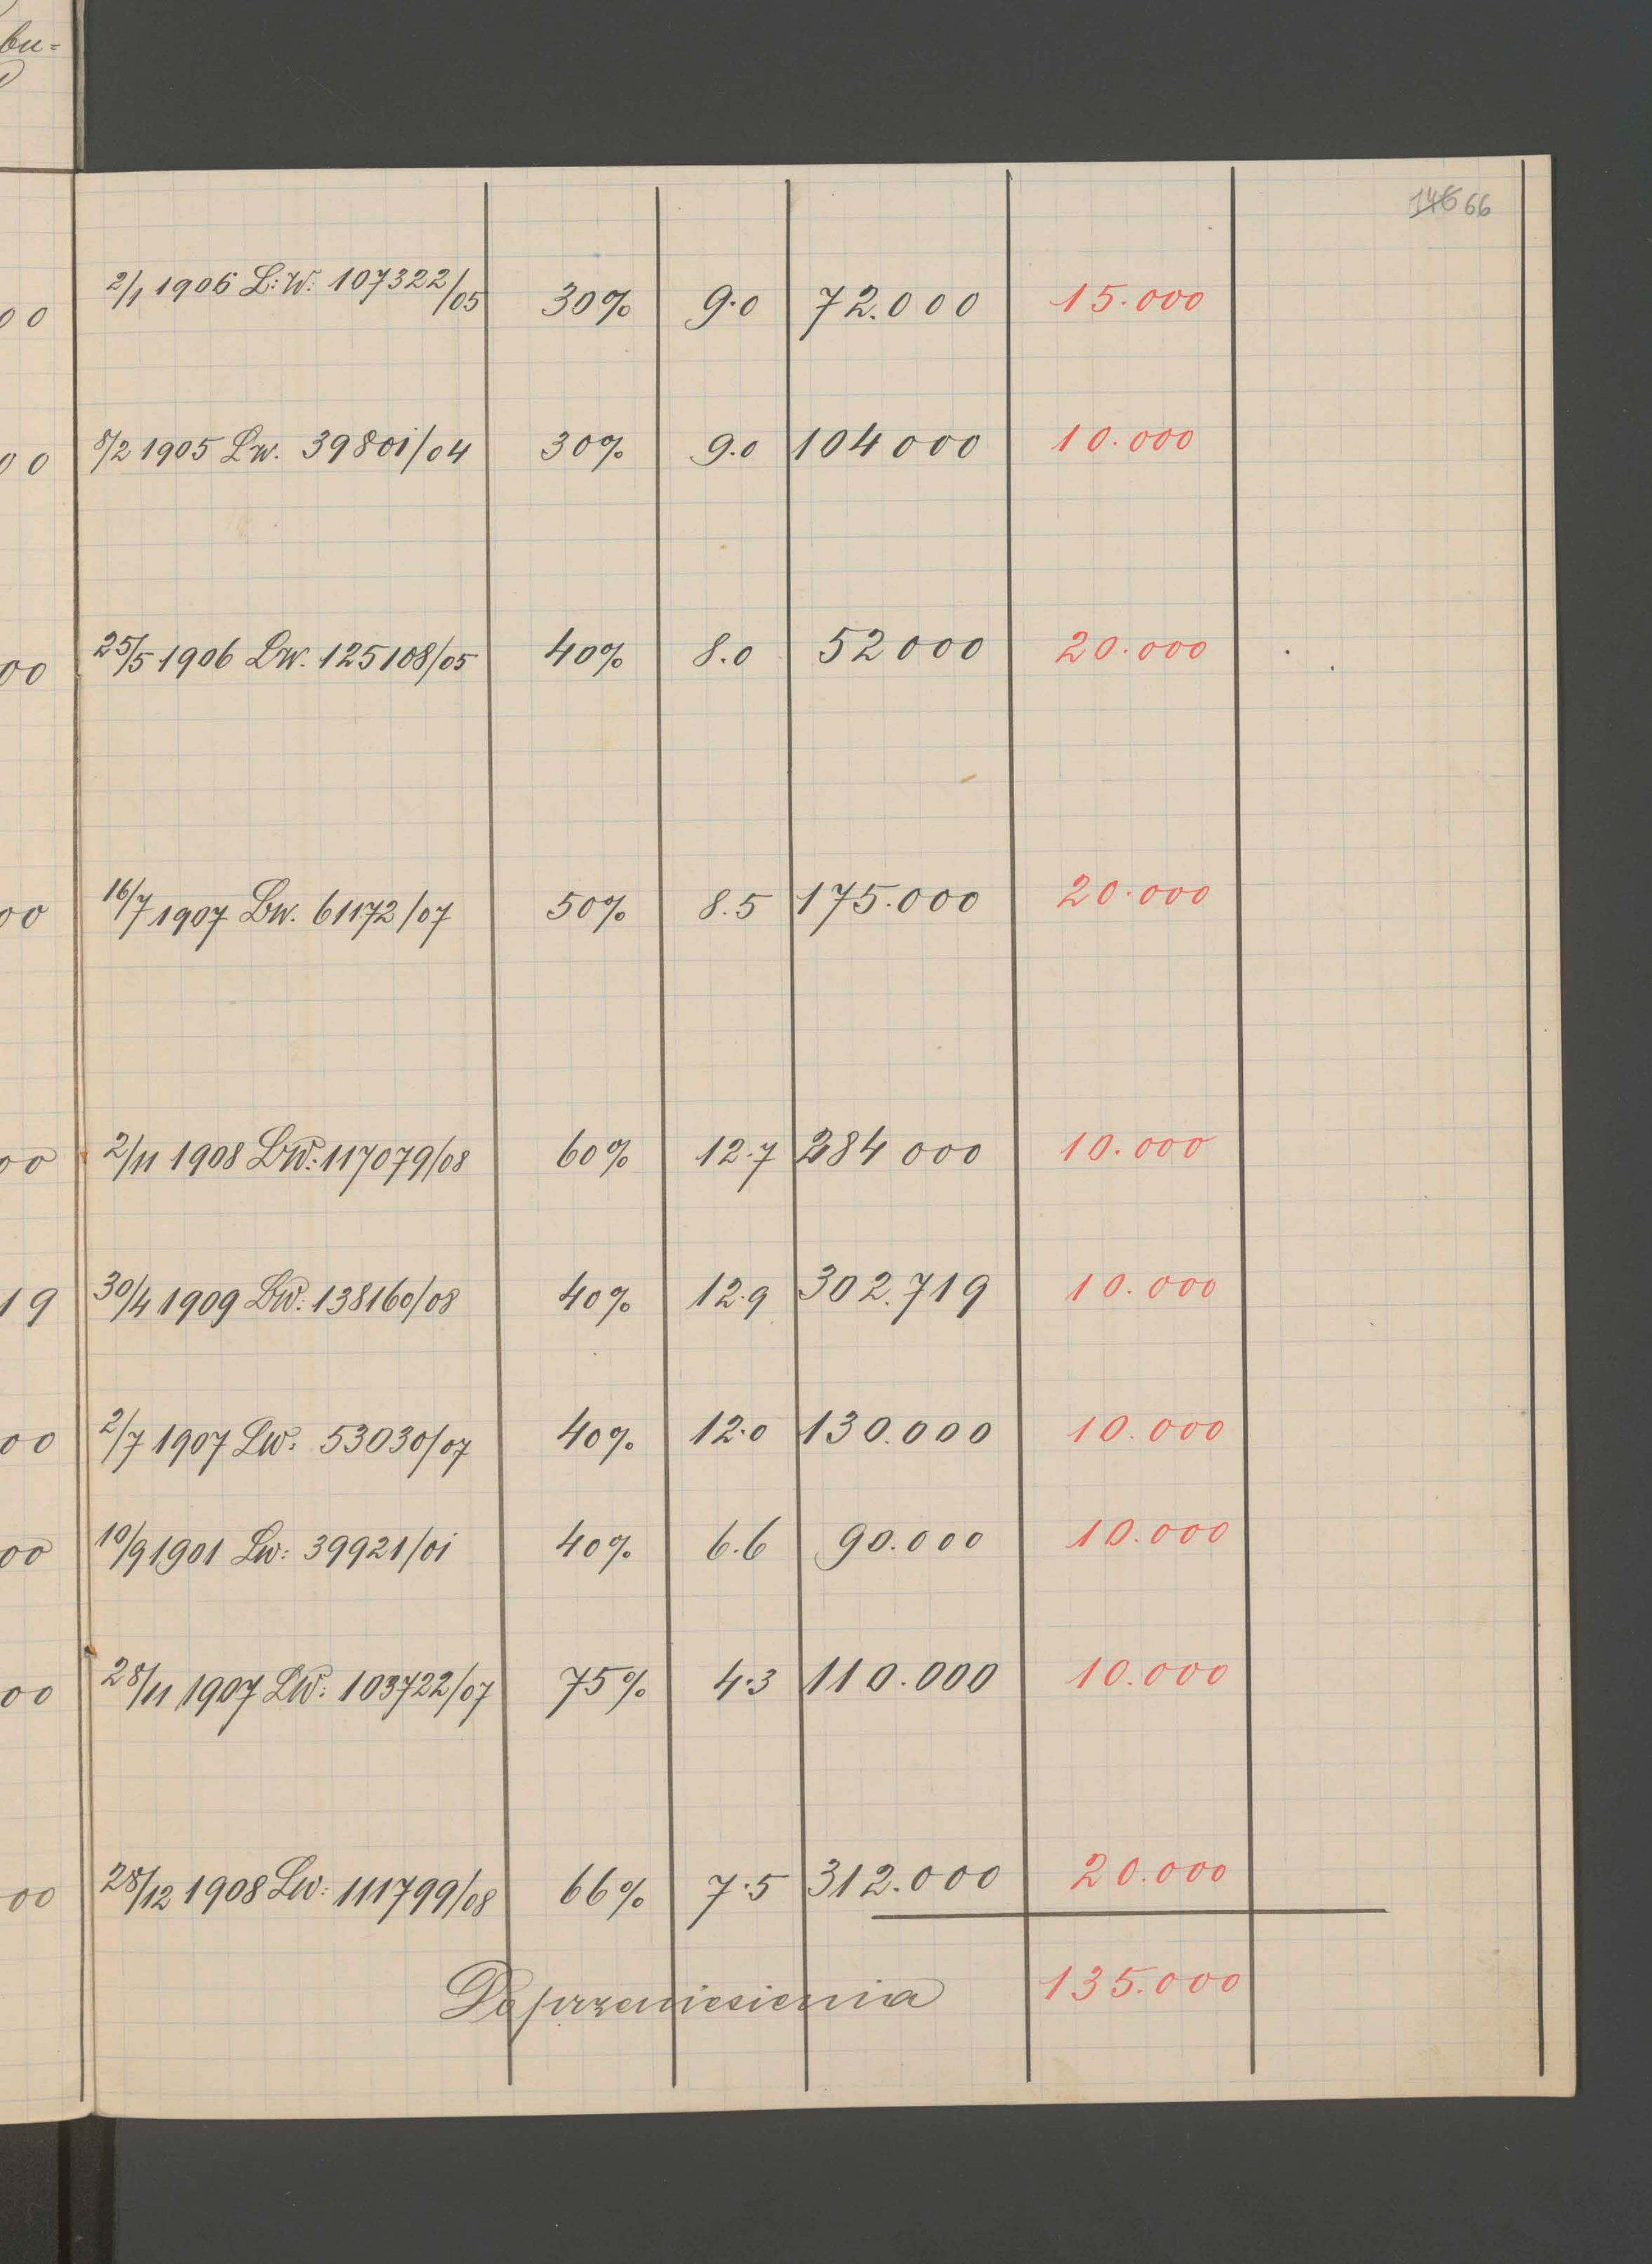 bu=
146 66
00 2/1 1906 L:W: 107322/05 30% 9.0 72.000 15.000
00 8/2 1905 Lw. 39801/04 30% 9.0 104000 10.000
00 25/5 1906 LW. 125108/05 40% 8.0 52000 20.000
00 16/7 1907 Lw. 61172/07 50% 8.5 175.000 20.000
00 2/11 1908 LW: 117079/08 60% 12.7 284000 10.000
19 30/4 1909 LW: 138160/08 40% 12.9 302.719 10.000
00 2/7 1907 LW: 53030/07 40% 12.0 130.000 10.000
00 10/9 1901 Lw: 39921/01 40% 6.6 90.000 10.000
00 28/11 1907 LW: 103722/07 75% 4.3 110.000 10.000
00 28/12 1908 Lw: 111799/08 66% 7.5 312.000 20.000
Do przeniesienia 135.000